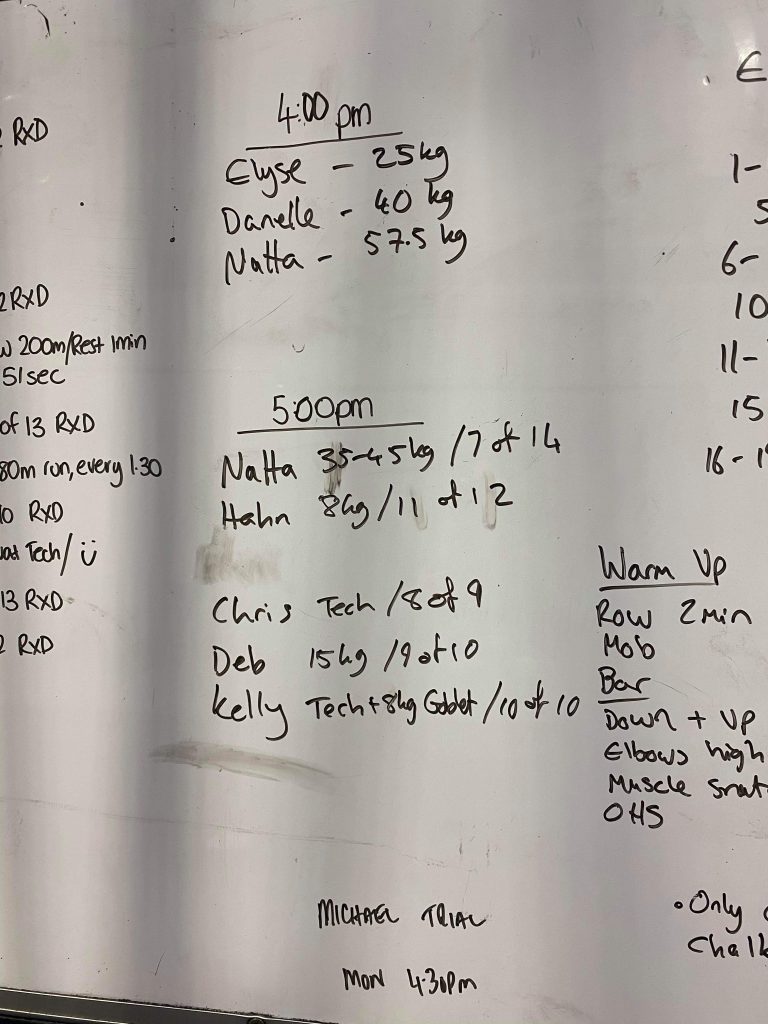 2 RXD
2 RXD
w 200m/Rest 1min
51sec
of 13 RXD
80m run, every 1.30
10 RXD
Tech/ ü
13 RXD
2 RXD
4:00 pm
Elyse - 25kg
Danelle - 40 kg
Natta - 57.5 kg
5:00pm
Natta 35-45kg /7 of 14
Hahn 8kg/11 of 12
Chris Tech /8 of 9
Deb 15kg /9 of 10
Kelly Tech+8kg Goblet /10 of 10
MICHAEL TRIAL
MON 4:30pm
E
1-
5
6-
10
11-
15
16-1
Warm Up
Row 2min
Mob
Bar
Down + Up
Elbows high
Muscle snat
OHS
• Only
Chalk